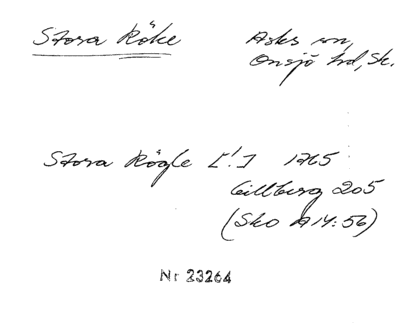 Stora Röke Asks sn,
Onsjö hd, Sk.
Stora Rögle [!] 1765
Gillberg 205
(Sko A14:56)
Nr 23264